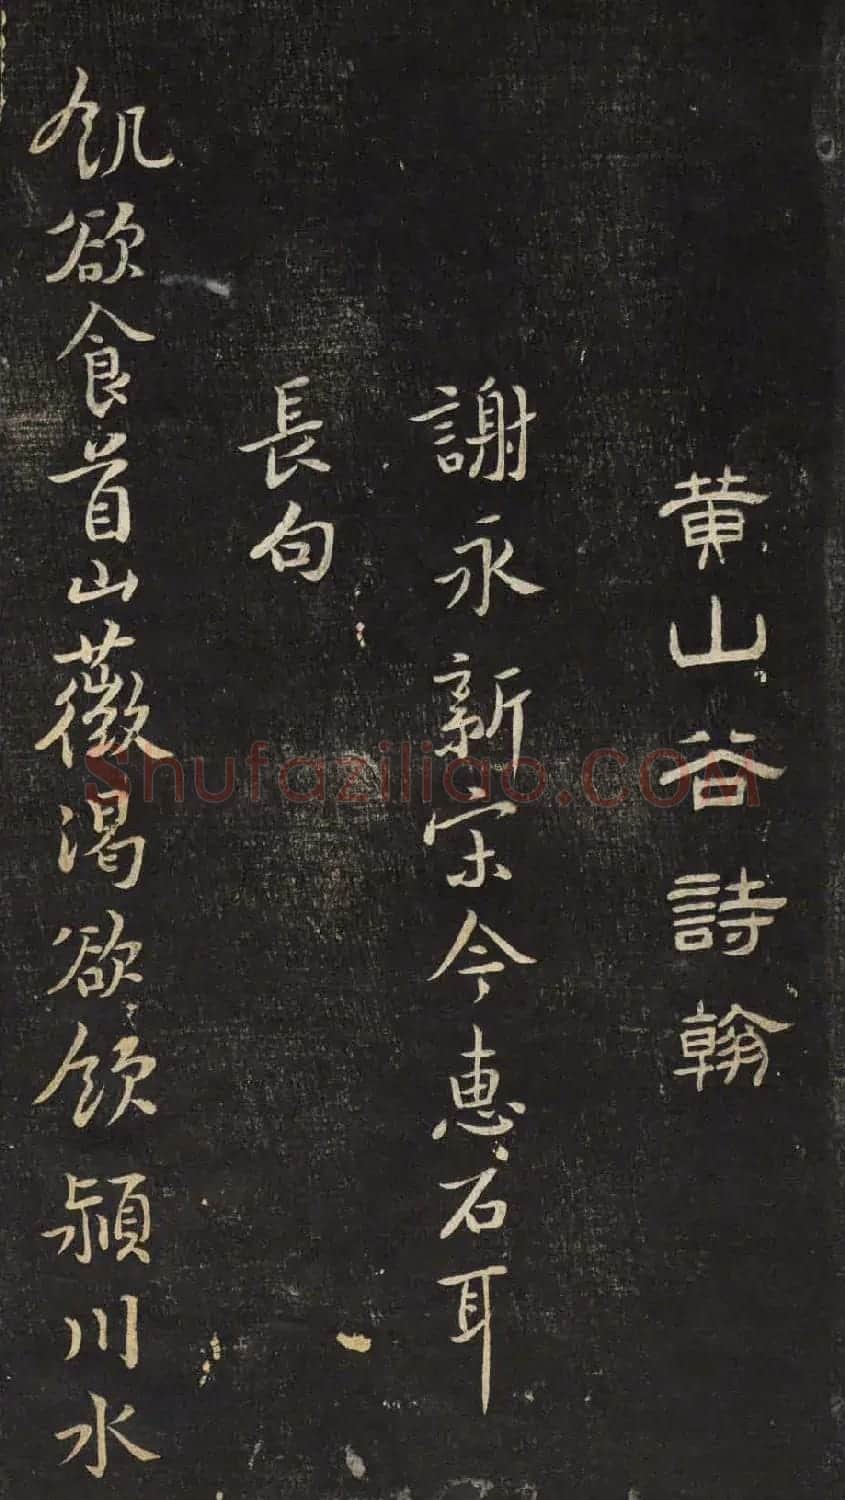 黄山谷詩翰
謝永新宋令惠石耳
長句
飢欲食首山薇渴欲飲潁川水
Shufaziliao.COM